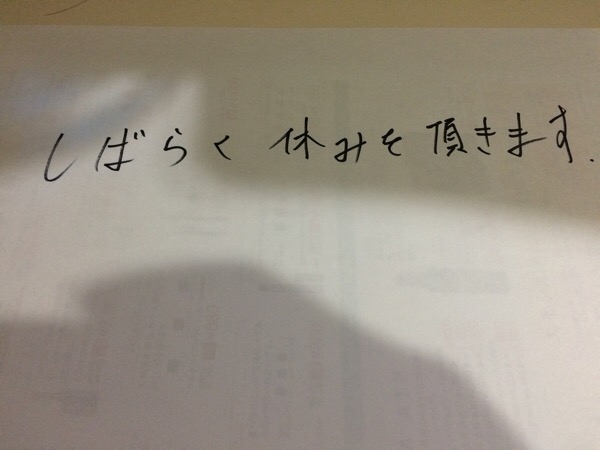 しばらく 休みを 頂きます.